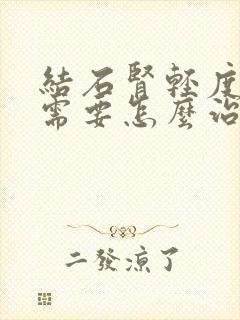 結石腎輕度
需要怎麼治
二發涼了